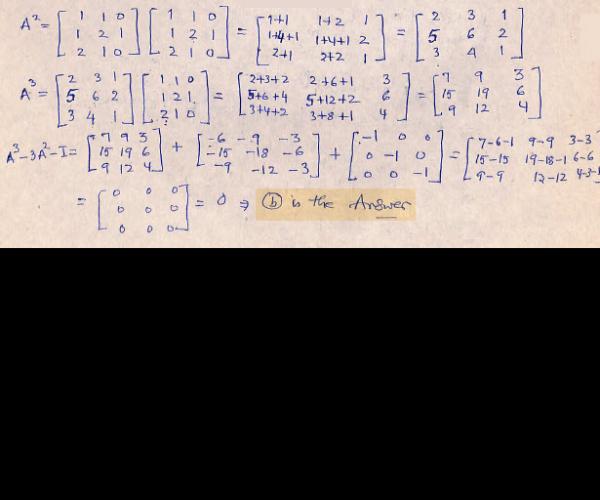 A² = [1 1 0; 1 2 1; 2 1 0] [1 1 0; 1 2 1; 2 1 0] = [1+1 1+2 1; 1+4+1 1+4+1 2; 2+1 2+2 1] = [2 3 1; 5 6 2; 3 4 1]
A³ = [2 3 1; 5 6 2; 3 4 1] [1 1 0; 1 2 1; 2 1 0] = [2+3+2 2+6+1 3; 5+6+4 5+12+2 6; 3+4+2 3+8+1 4] = [7 9 3; 15 19 6; 9 12 4]
A³-3A²-I = [7 9 3; 15 19 6; 9 12 4] + [-6 -9 -3; -15 -18 -6; -9 -12 -3] + [-1 0 0; 0 -1 0; 0 0 -1] = [7-6-1 9-9 3-3; 15-15 19-18-1 6-6; 9-9 12-12 4-3-1
= [0 0 0; 0 0 0; 0 0 0] = 0 ⇒ ⓑ is the Answer